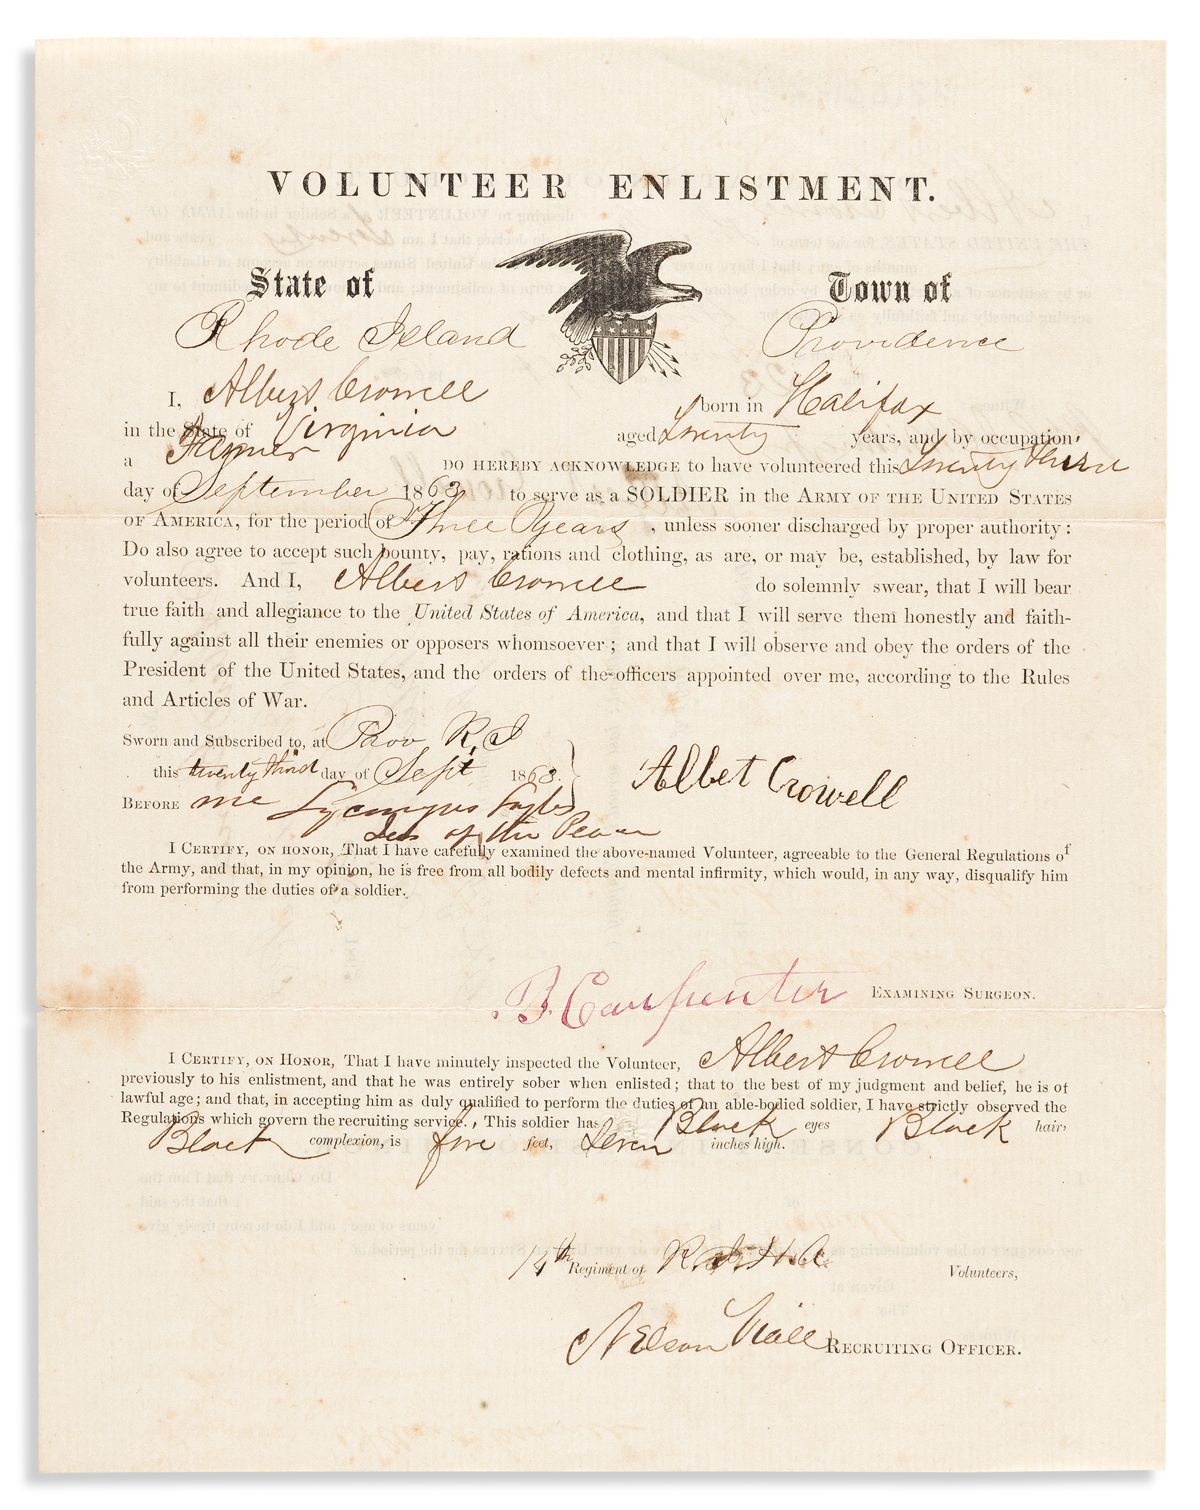 VOLUNTEER ENLISTMENT.
State of Town of
Rhode Island Providence
I, Albert Crowell born in Halifax
in the State of Virginia aged Twenty years, and by occupation
a Farmer DO HEREBY ACKNOWLEDGE to have volunteered this Twenty third
day of September 1863 to serve as a SOLDIER in the ARMY OF THE UNITED STATES
OF AMERICA, for the period of Three Years, unless sooner discharged by proper authority:
Do also agree to accept such bounty, pay, rations and clothing, as are, or may be, established, by law for
volunteers. And I, Albert Crowell do solemnly swear, that I will bear
true faith and allegiance to the United States of America, and that I will serve them honestly and faith-
fully against all their enemies or opposers whomsoever; and that I will observe and obey the orders of the
President of the United States, and the orders of the officers appointed over me, according to the Rules
and Articles of War.
Sworn and Subscribed to, at Prov R.I
this twenty third day of Sept 1863. Albet Crowell
BEFORE me Lycurgus Sayles
Jus of the Peace
I CERTIFY, ON HONOR, That I have carefully examined the above-named Volunteer, agreeable to the General Regulations of
the Army, and that, in my opinion, he is free from all bodily defects and mental infirmity, which would, in any way, disqualify him
from performing the duties of a soldier.
B. Carpenter EXAMINING SURGEON.
I CERTIFY, ON HONOR, That I have minutely inspected the Volunteer, Albert Crowell
previously to his enlistment, and that he was entirely sober when enlisted; that to the best of my judgment and belief, he is of
lawful age; and that, in accepting him as duly qualified to perform the duties of an able-bodied soldier, I have strictly observed the
Regulations which govern the recruiting service. This soldier has Black eyes Black hair,
Black complexion, is five feet, seven inches high.
14th Regiment of R.I. H.A. Volunteers,
Nelson Viall RECRUITING OFFICER.